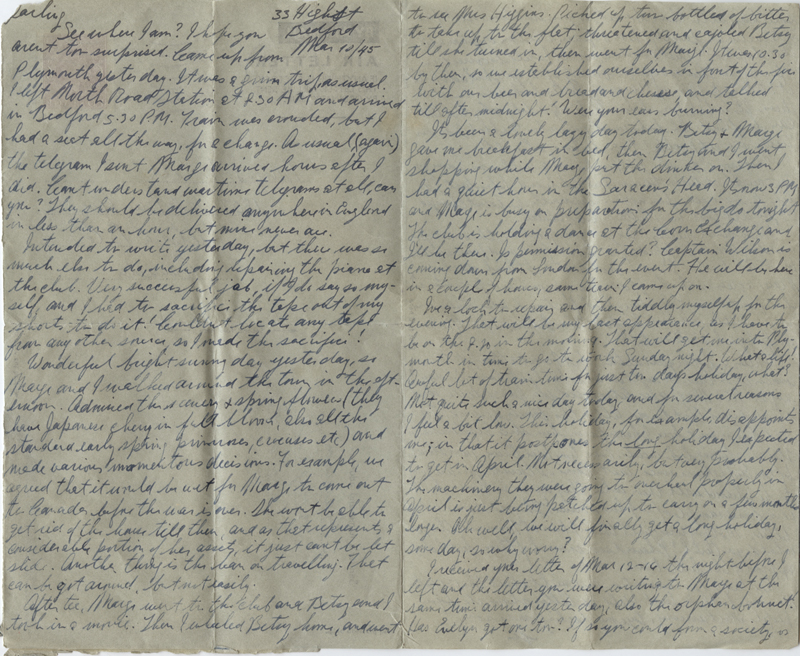 Darling
33 High St
Bedford
Mar 10/45
See where I am? I hope you
aren't too surprised. Came up from
Plymouth yesterday. It was a grim trip, as usual.
I left North Road Station at 8.30 AM and arrived
in Bedford 5.30 P.M. Train was crowded, but I
had a seat all the way, for a change. As usual (again)
the telegram I sent Marge arrived hours after I
did. Can't understand wartime telegrams at all, can
you? They should be delivered anywhere in England
in less than an hour, but never are.
Intended to write yesterday, but there was so
much else to do, including repairing the piano at
the club. Very successful job, if I do say so my-
self, and I had to sacrifice the tape out of my
shorts to do it! Couldn't locate any tape
from any other source, so I made the sacrifice!
Wonderful bright sunny day yesterday, so
Marge and I walked around the town in the aft-
ernoon. Admired the scenery & spring flowers (they
have Japanese cherry in full bloom, also all the
standard early spring primroses, crocuses etc) and
made various momentous decisions. For example, we
agreed that it would be wet for Marge to come out
to Canada before the war is over. She won't be able to
get rid of the house till then, and as that represents a
considerable portion of her assets, it just can't be let
slide. Another thing is the ban on travelling. That
can be got around, but not easily.
After tea, Marge went to the club and Betsy and I
took in a movie. Then I walked Betsy home, and went
to see Mrs Higgins. Picked up two bottles of bitter
to take up to the flat, threatened and cajoled Betsy
till she turned in, then went for Marge. It was 10.30
by then, so we established ourselves in front of the fire
with our beer and bread and cheese, and talked
till after midnight. Were your ears burning?
It's been a lovely lazy day today. Betsy & Marge
gave me breakfast in bed, then Betsy and I went
shopping while Marge put the dinner on. Then I
had a quiet hour in the Saracen's Head. It's now 3 P.M.
and Marge is busy on preparations for the big do tonight.
The club is holding a dance at the Corn Exchange and
I'll be there. Is permission granted? Captain Wilson is
coming down from London for the event. He will be here
in a couple of hours, same train I came up on.
I've a lock to repair, and then tiddly myself up for the
evening. That will be my last appearance, as I have to
be on the 8.50 in the morning. That will get me into Ply-
mouth in time to go to work Sunday night. What a life!
Awful lot of train time for just two days holiday, what?
Not quite such a nice day today, and for several reasons
I feel a bit low. This holiday, for example, disappoints
me, in that it postpones the long holiday I expected
to get in April. Not necessarily, but very probably.
The machinery they were going to overhaul properly in
April is just being patched up to carry on a few months
longer. Oh well, we will finally get a long holiday,
some day, so why worry?
I received your letter of Mar 12-16 the night before I
left and the letter you were writing to Marge at the
same time arrived yesterday, also the orphan bonnet.
Has Evelyn got one too? If so you could form a society, or